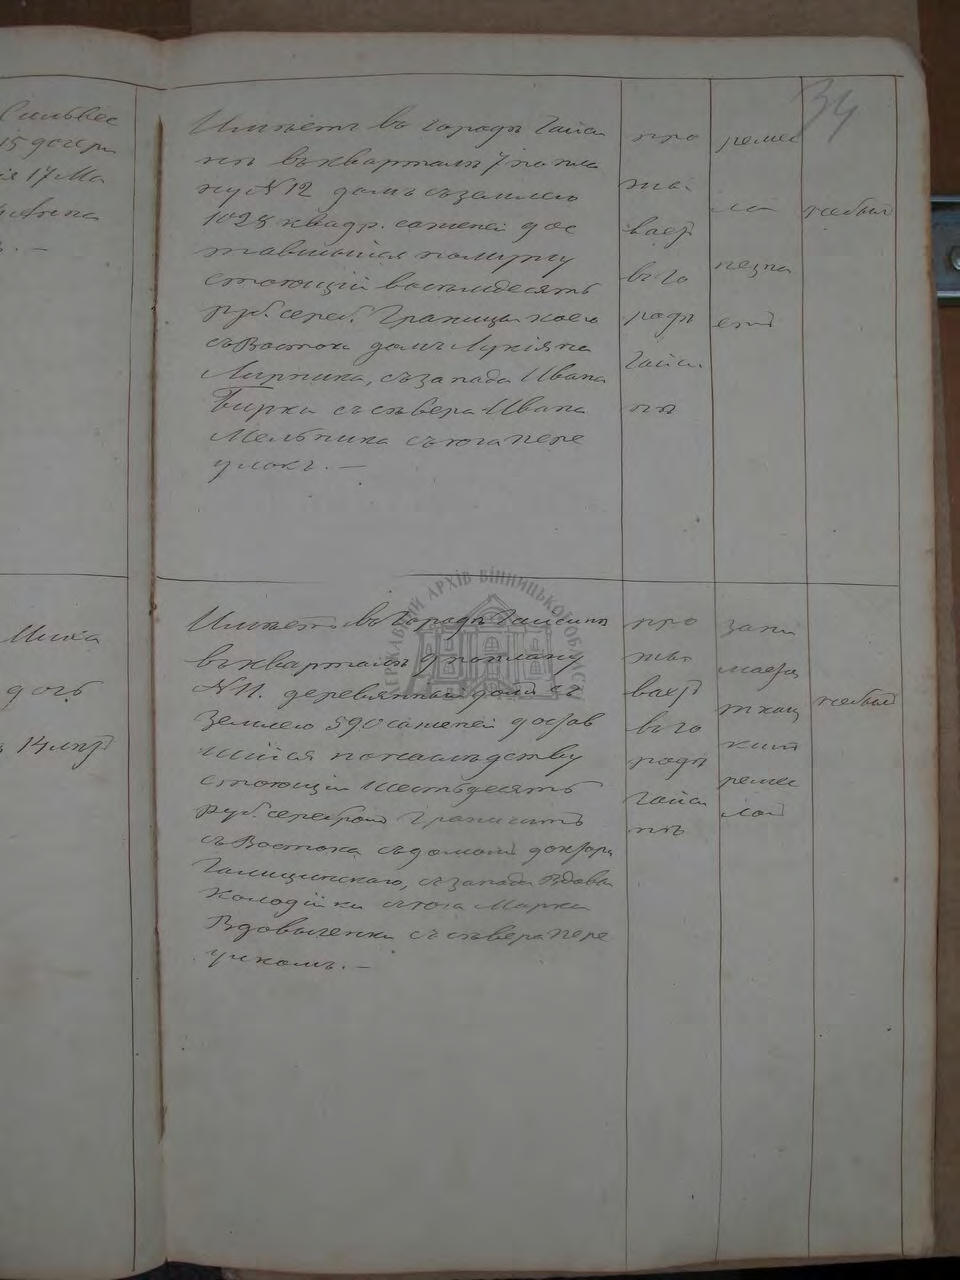 34
Сильвес
15 дочери
ія 17 Ма
Анна
Имѣетъ въ городѣ Гайси
нѣ въ кварталѣ 7 по пла
ну N 12 домъ съ землею
1025 квадр. саженей дос
тавшійся по
стоющій восемьдесятъ
руб. сереб. Границы коего
съ Востока домъ Лукіяна
Лирника, съ запада Ивана
Бирки съ сѣвера Ивана
Мельника съ юга пере
улокъ. —
про
жи
ваетъ
въ го
родѣ
Гайси
нѣ
ремес
ла
незна
етъ
небылъ
Миха
дочь
14 лѣтъ
Имѣетъ въ Городѣ Гайсинѣ
въ кварталѣ 9 по плану
N 11. деревянный домъ съ
землею 590 саженей достав
шійся по наслѣдству
стоющій шестьдесятъ
руб. серебромъ Граничитъ
съ Востока съ домомъ доктора
Галицинскаго, съ запада Вдовы
Колодійки съ юга Марка
Вдовыченка съ сѣвера пере
улкомъ. —
про
жи
ваетъ
въ го
родѣ
Гайси
нѣ
зани
мается
ткац
кимъ
ремес
ломъ
небылъ
ДЕРЖАВНИЙ АРХІВ ВІННИЦЬКОЇ ОБЛАСТІ